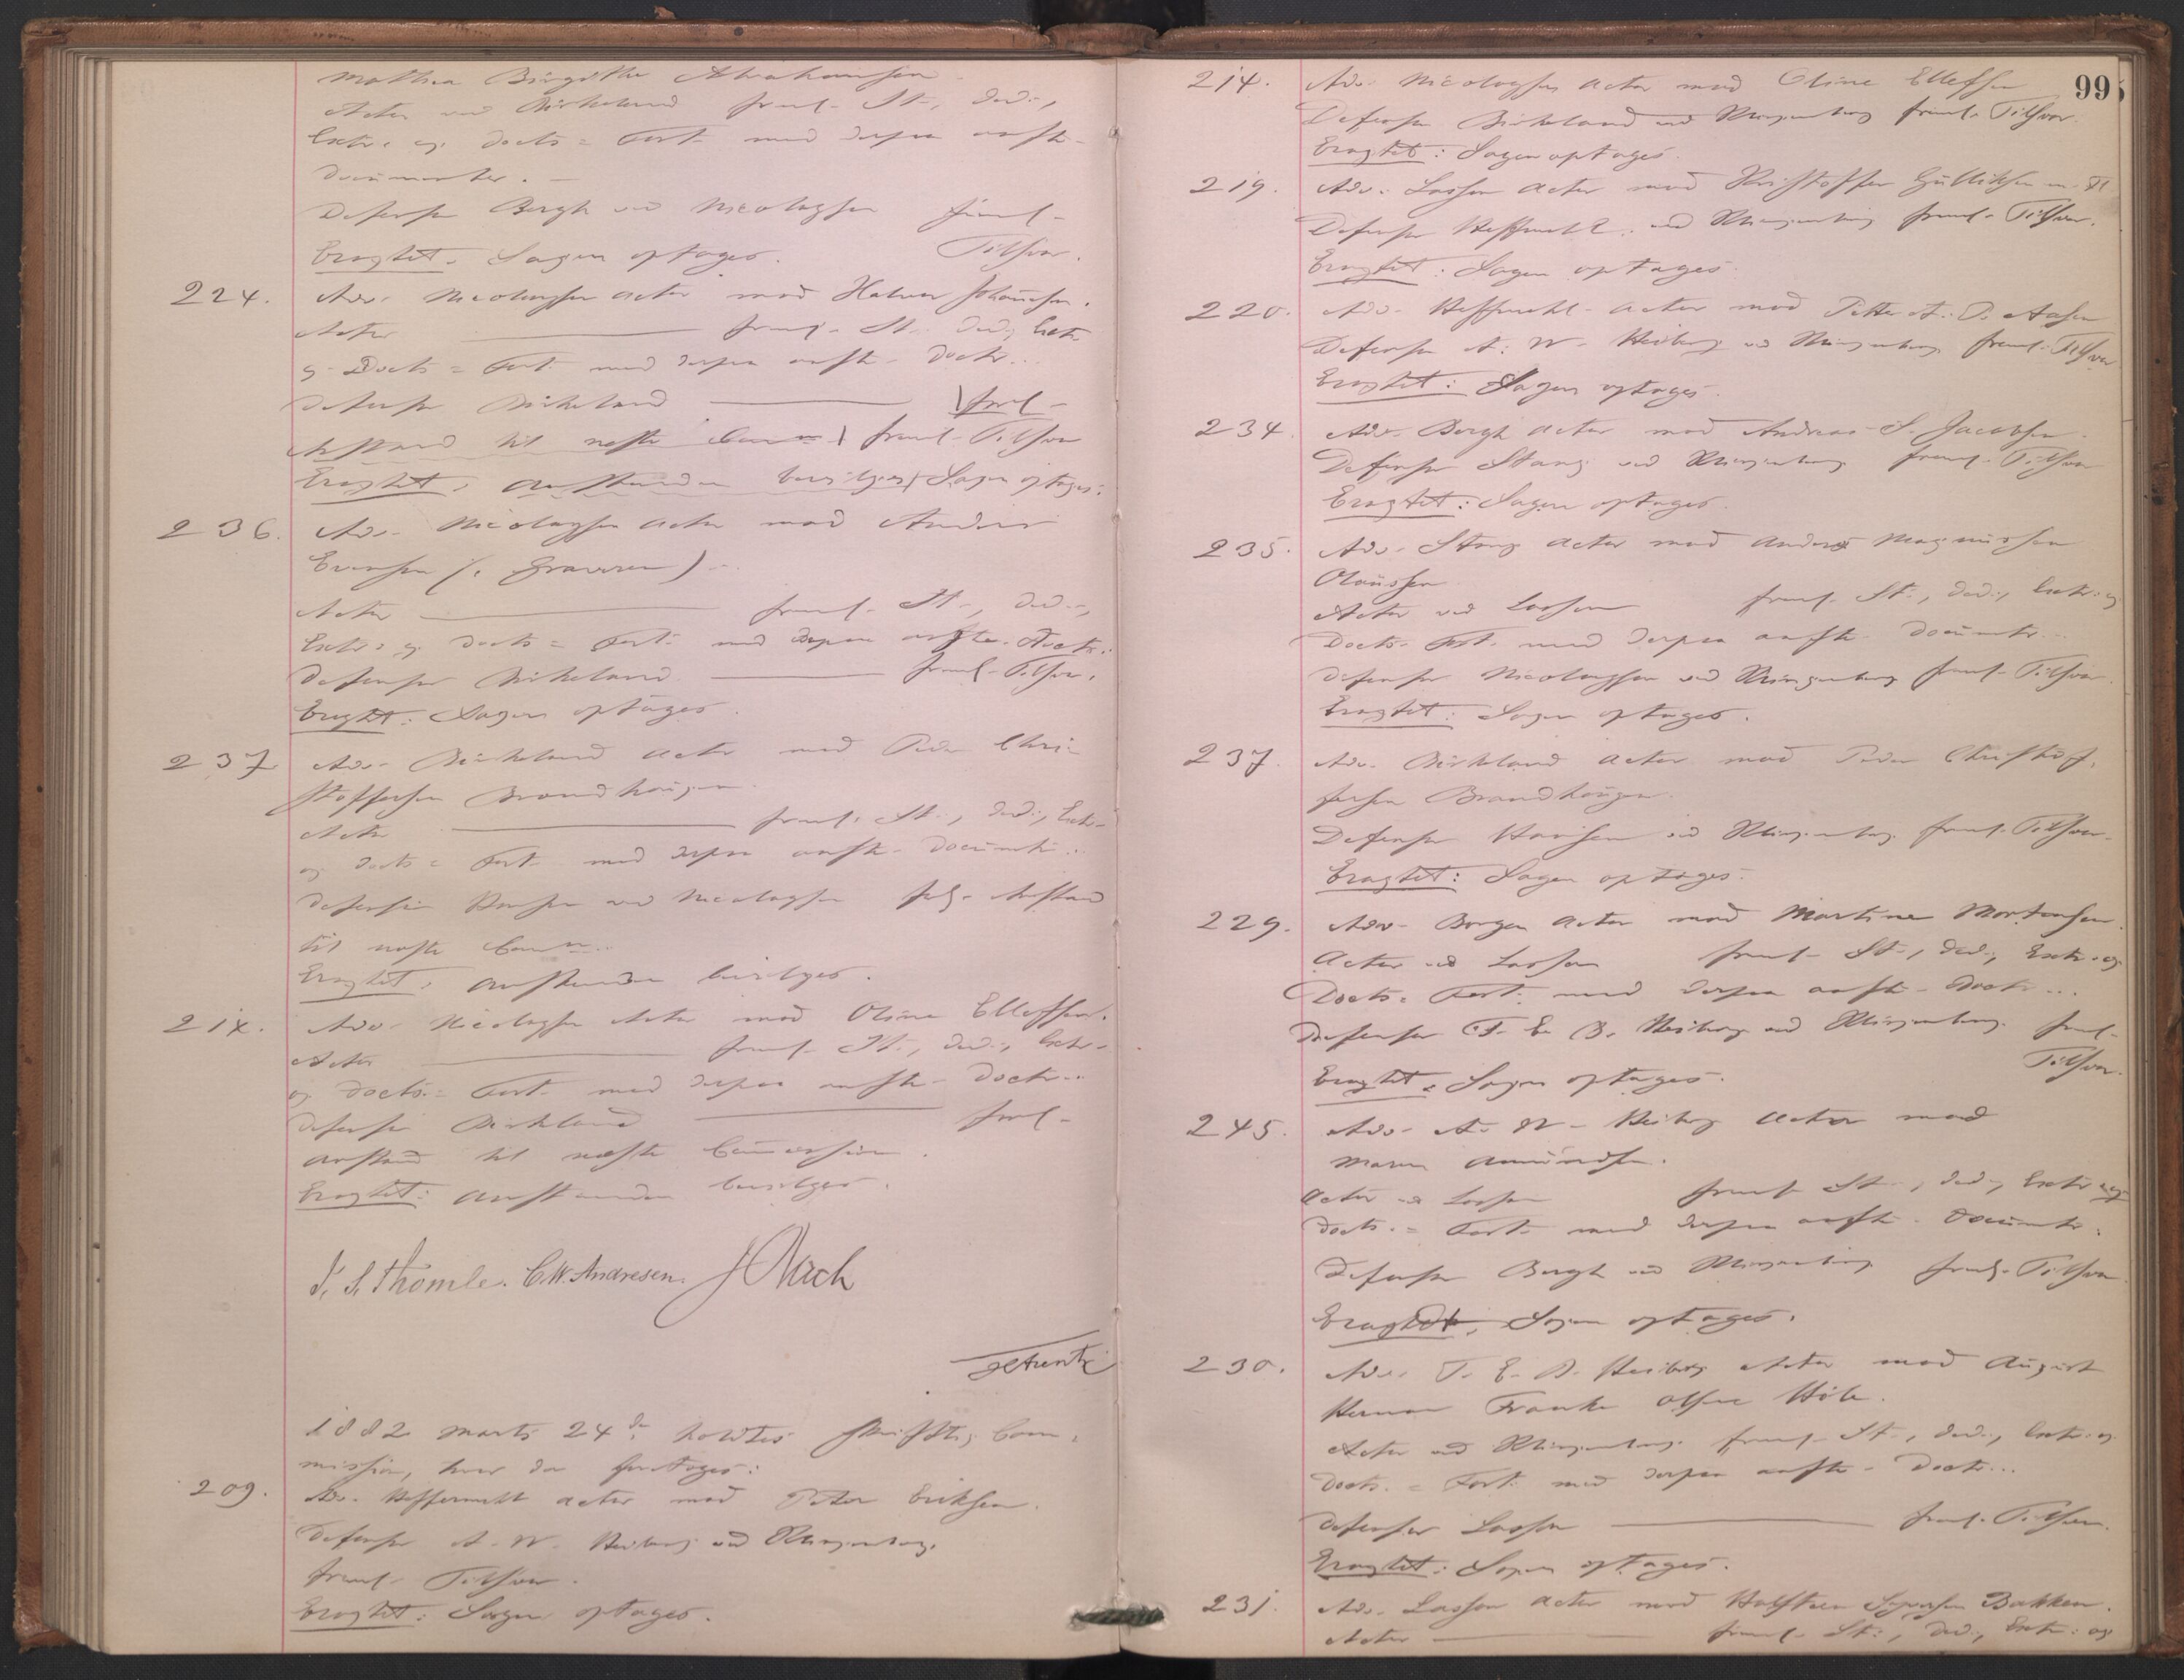 Mathea Birgitte Abrahamsen
Actor ved Birkeland freml. St., Ded.,
Extr. og Docts = Fort. med derpaa anfte
Documenter. —
Defensor Bergh ved Nicolaysen freml.
Tilsvar.
Eragtet. Sagen optages.
224. Adv. Nicolaysen Actor mod Halvor Johansen.
Actor — freml. St., Ded., Extr
og Docts = Fort. med derpaa anfte Doctr..
Defensor Birkeland — freml.
Anstand til næste Comm. freml. Tilsvar
Eragtet, Anstanden bevilges Sagen optages.
236. Adv. Nicolaysen Actor mod Anders
Evensen (i Graveren)
Actor — freml. St., Ded.,
Extr. og Docts = Fort. med derpaa anfte Doctr.
Defensor Birkeland — freml. Tilsvar.
Eragtet: Sagen optages.
237. Adv. Birkeland Actor mod Peder Chri-
stoffersen Brandhaugen.
Actor — freml. St., Ded., Extr.
og Docts = Fort. med derpaa anfte Documtr..
Defensor ved Nicolaysen Anstand
til næste Comm..
Eragtet, Anstanden bevilges.
214. Adv. Nicolaysen Actor mod Oline Ellefsen.
Actor — freml. St., Ded., Extr.
og Docts. = Fort. med derpaa anfte Doctr..
Defensor Birkeland — freml.
Anstand til næste Commission.
Eragtet: Anstanden bevilges.
C. W. Andresen.
1882 Marts 24de holdtes skriftlig Com-
mission, hvor da foretoges:
209. Adv. Heffermehl Actor mod Peter Eriksen.
Defensor A. W. Heiberg ved Klingenberg.
freml. Tilsvar.
Eragtet: Sagen optages.
99
214. Adv. Nicolaysen Actor mod Oline Ellefsen
Defensor Birkeland ved Klingenberg freml. Tilsvar.
Eragtet: Sagen optages.
219. Adv. Lasson Actor mod Kristoffer Gulliksen m. Fl
Defensor Heffermehl ved Klingenberg freml. Tilsvar.
Eragtet: Sagen optages.
220. Adv. Heffermehl Actor mod Petter A. D. Aasen
Defensor A. W. Heiberg ved Klingenberg freml. Tilsvar
Eragtet: Sagen optages.
234. Adv. Bergh Actor mod Andreas S. Jacobsen.
Defensor Stang ved Klingenberg freml. Tilsvar
Eragtet: Sagen optages.
235. Adv. Stang Actor mod Anders Magnussen
Olaussen
Actor ved Lasson freml. St., Ded., Extr. og
Docts. Fort. med derpaa anfte Documtr..
Defensor Nicolaysen ved Klingenberg freml. Tilsvar.
Eragtet: Sagen optages.
237. Adv. Birkeland Actor mod Peder Christof-
fersen Brandhaugen.
Defensor ved Klingenberg freml. Tilsvar.
Eragtet: Sagen optages.
229. Adv. Borgen Actor mod Martine Mortensen.
Actor ved Lasson freml. St., Ded., Extr. og
Docts. Fort. med derpaa anfte Doctr...
Defensor F. E. B. Heiberg ved Klingenberg freml.
Tilsvar.
Eragtet: Sagen optages.
245. Adv. A. W. Heiberg Actor mod
Maren Amundsen.
Actor ved Lasson freml. St., Ded., Extr. og
Docts. = Fort. med derpaa anfte Documtr.
Defensor Bergh ved Klingenberg freml. Tilsvar.
Eragtet, Sagen optages.
230. Adv. F. E. B. Heiberg Actor mod August
Herman Franke Olsen
Actor ved Klingenberg freml. St., Ded., Extr. og
Docts. = Fort. med derpaa anfte Doctr...
Defensor Lasson — freml. Tilsvar.
Eragtet: Sagen optages.
231. Adv. Lasson Actor mod Halsteen Bakken.
Actor — freml. St., Ded., Extr. og